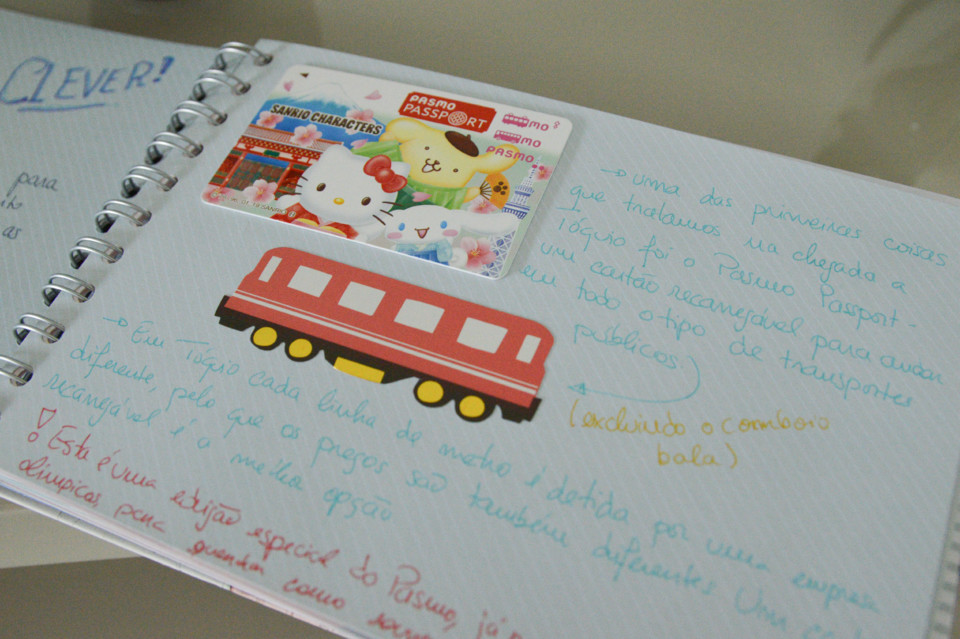 CLEVER!
para
as
SANRIO CHARACTERS
PASMO
PASSPORT
PASMO
→ uma das primeiras coisas
que tratamos na chegada a
Tóquio foi o Pasmo Passport -
um cartão recarregável para andar
em todo o tipo de transportes
públicos
(excluindo o comboio
bala)
→ Em Tóquio cada linha de metro é detida por uma empresa
diferente, pelo que os preços são também diferentes. Um
recarregável é a melhor opção
! Esta é uma edição especial do Pasmo, já
olímpicos, para guardar como